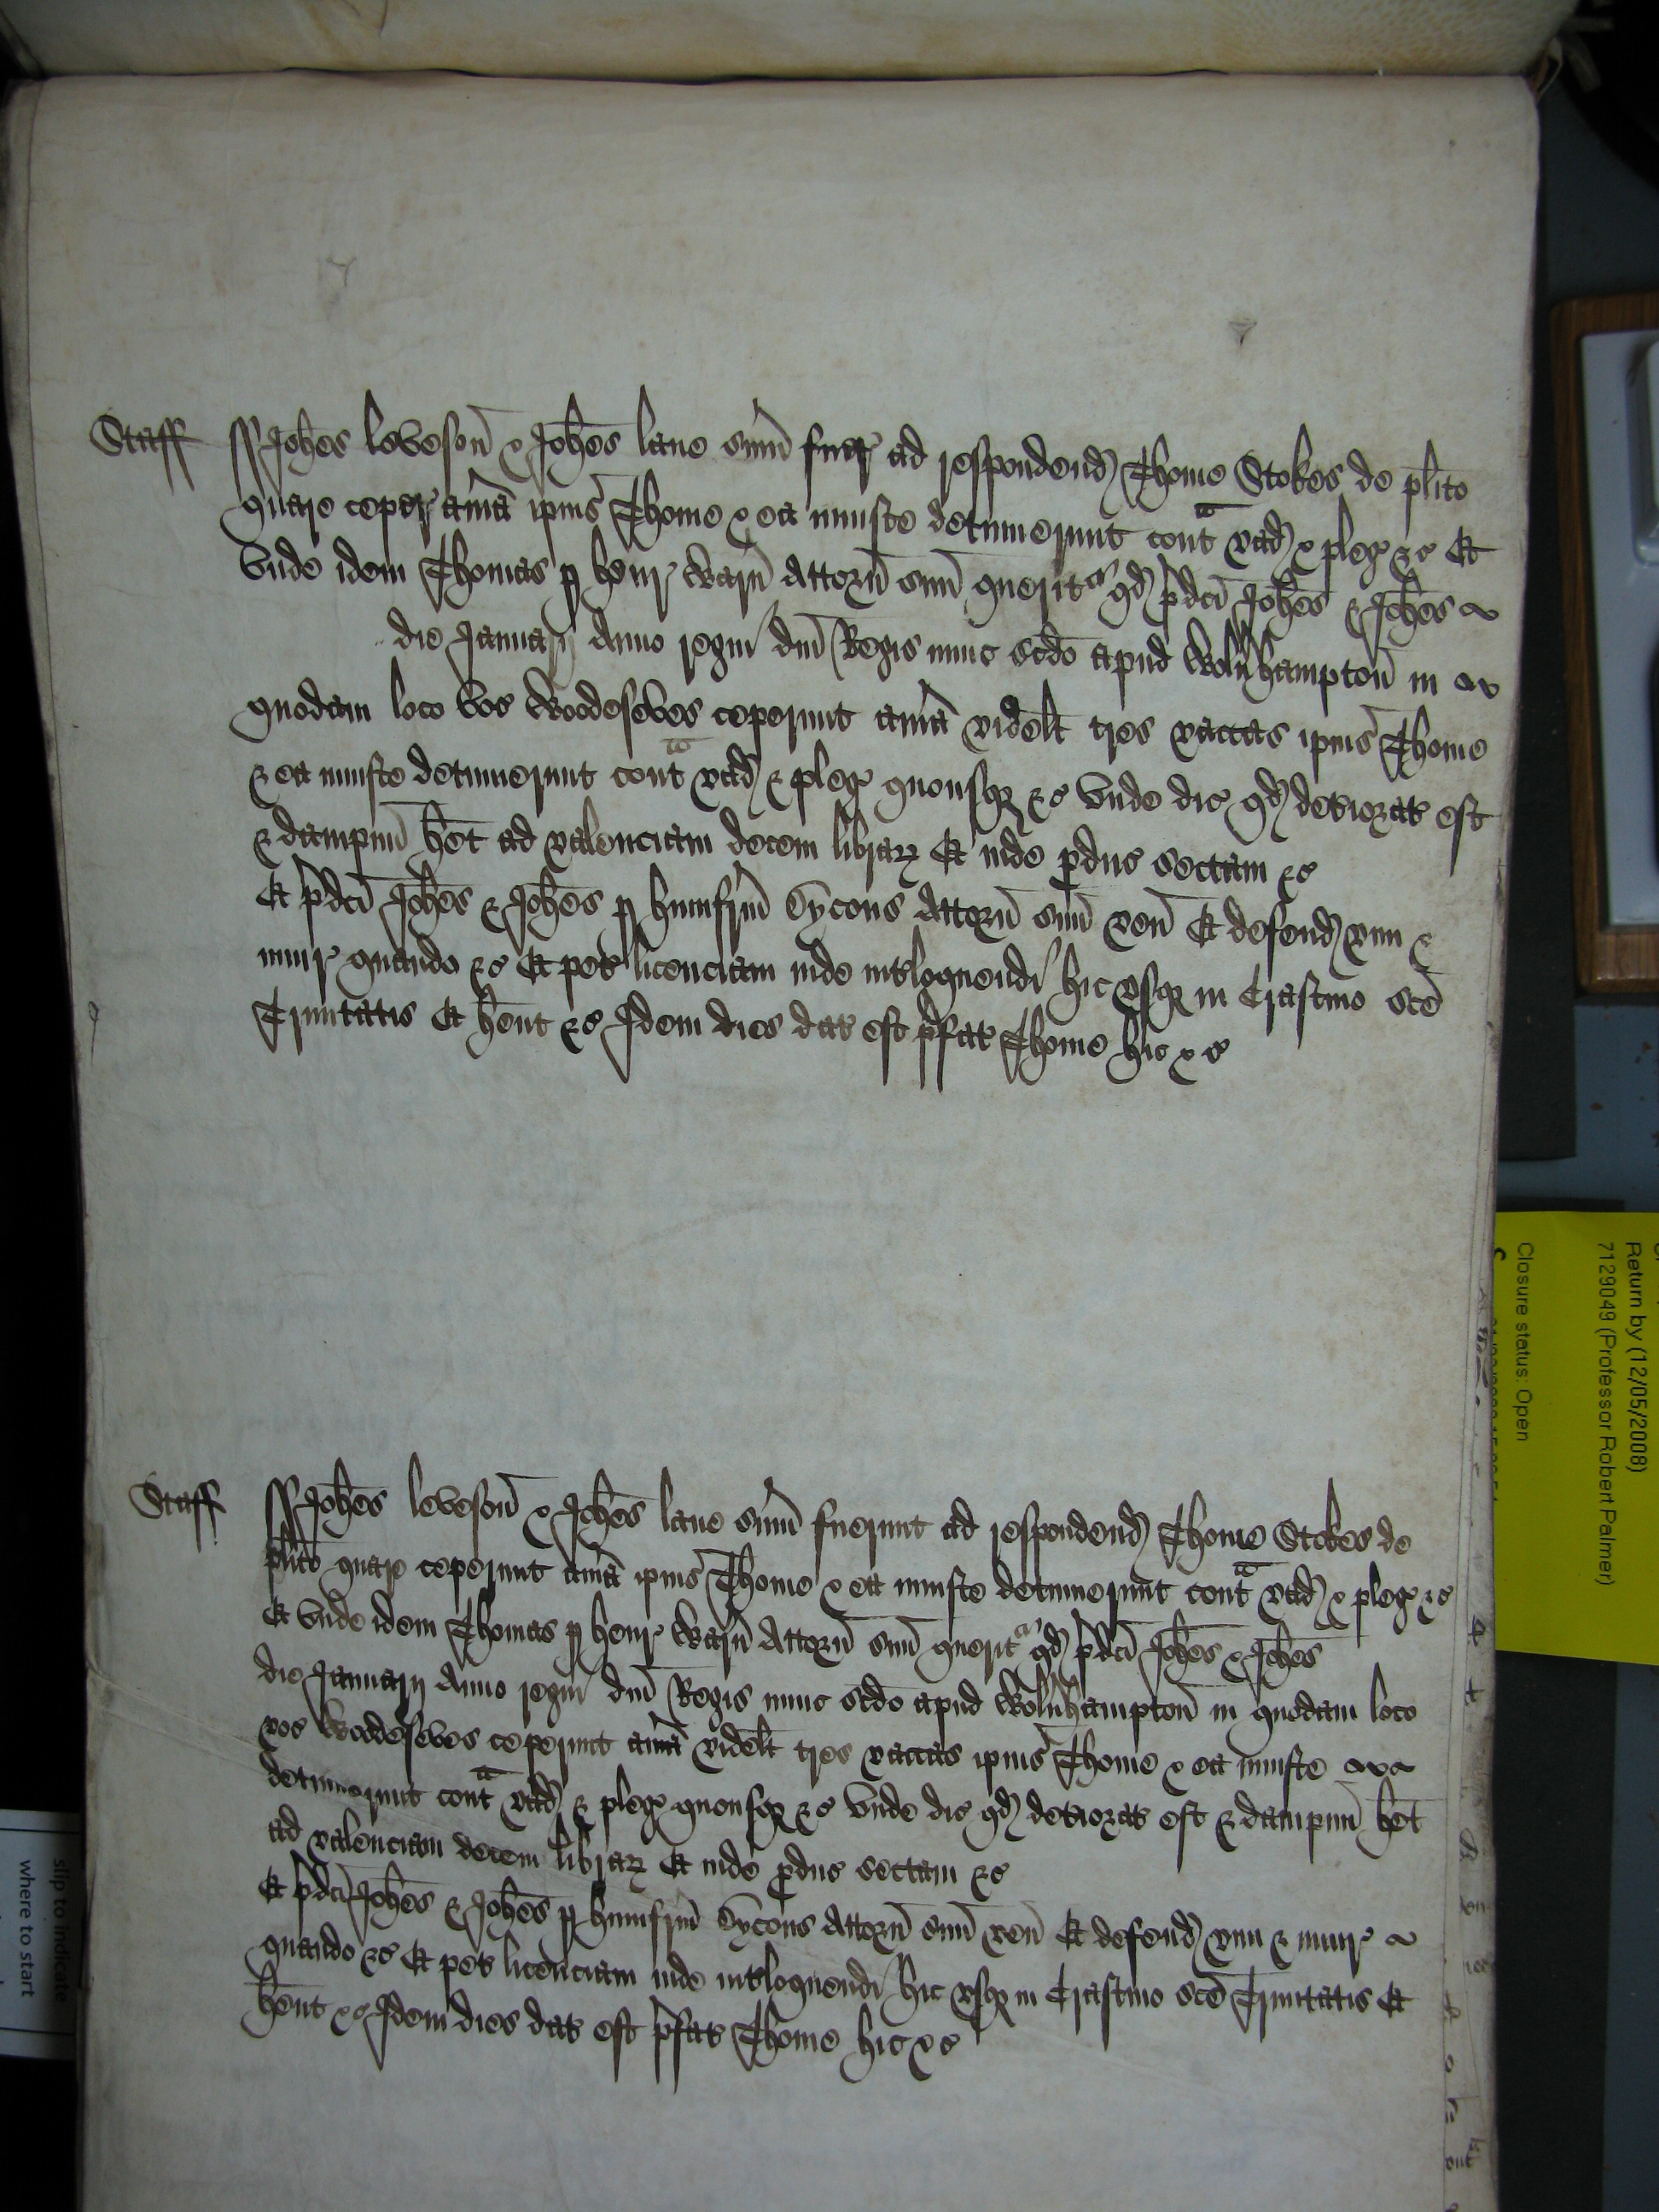 Staff
ss Joh̄es Leveson̄ & Joh̄es Lane sum̄ fuer̄ ad respondend̄ Thome Stokes de pl̄ito
quare ceper̄ aūia ip̄ius Thome & ea iniuste detinuerunt cont̄a vad̄ & pleḡ &c Et
vnde idem Thomas p̱ henr̄ Warn̄ Attorn̄ suū querit̄ qd̄ p̄dc̄i Joh̄es & Joh̄es
die Januarij Anno regni dn̄i Regis nunc sc̄do apud Woln̄hampton̄ in
quodam loco voc̄ Woodeseves ceperunt aūia videlt̄ tres vaccas ip̄ius Thome
& ea iniuste detinuerunt cont̄a vad̄ & pleḡ quousq̨ &c vnde dic̄ qd̄ det̄iorat̄ est
& dampnū h̄et ad valenciam decem librar̄ Et inde p̱duc̄ sectam &c
Et p̄dc̄i Joh̄es & Joh̄es p̱ humfrm̄ Sycons Attorn̄ suū ven̄ Et defend̄ vim &
iniur̄ quando &c Et pet̄ licenciam inde int̄loquendi hic vsq̨ in Crastino sc̄e
Trinitatis Et h̄ent &c Idem dies dat̄ est p̄fat̄ Thome hic &c
Staff
ss Joh̄es Leveson̄ & Joh̄es Lane sum̄ fuerunt ad respondend̄ Thome Stokes de
pl̄ito quare ceperunt aūia ip̄ius Thome & ea iniuste detinuerunt cont̄a vad̄ & pleḡ &c
Et vnde idem Thomas p̱ henr̄ Warn̄ Attorn̄ suū querit̄ qd̄ p̄dc̄i Joh̄es & Joh̄es
die Januarij Anno regni dn̄i Regis nunc sc̄do apud Woln̄hampton̄ in quodam loco
voc̄ Wodeseves ceperunt aūia videlt̄ tres vaccas ip̄ius Thome & ea iniuste
detinuerunt cont̄a vad̄ & pleḡ quousq̨ &c vnde dic̄ qd̄ det̄iorat̄ est & dampnū h̄et
ad valenciam decem librar̄ Et inde p̱duc̄ sectam &c
Et p̄dc̄i Joh̄es & Joh̄es p̱ humfrm̄ Sycons Attorn̄ suū ven̄ Et defend̄ vim & iniur̄
quando &c Et pet̄ licenciam inde int̄loquendi hic vsq̨ in Crastino sc̄e Trinitatis Et
h̄ent &c Idem dies dat̄ est p̄fat̄ Thome hic &c
Return by (12/05/2008)
7129049 (Professor Robert Palmer)
Closure status: Open
slip to indicate
where to start